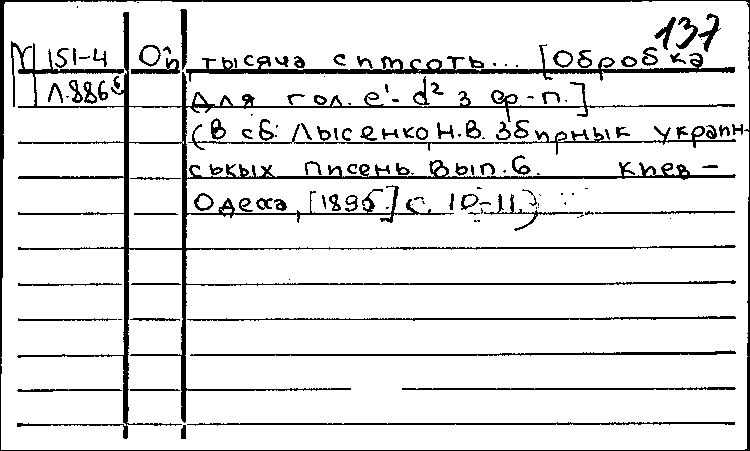 137
M 151-4 Оп тысяча сітсоть... [Обробка
Л.886 для гол. e¹-d² з ср-п.]
(В сб: Лысенко, Н.В. Збирнык украин-
ськых писень. Вып. 6. Киев-
Одесса, [1895.] с. 10-11.)